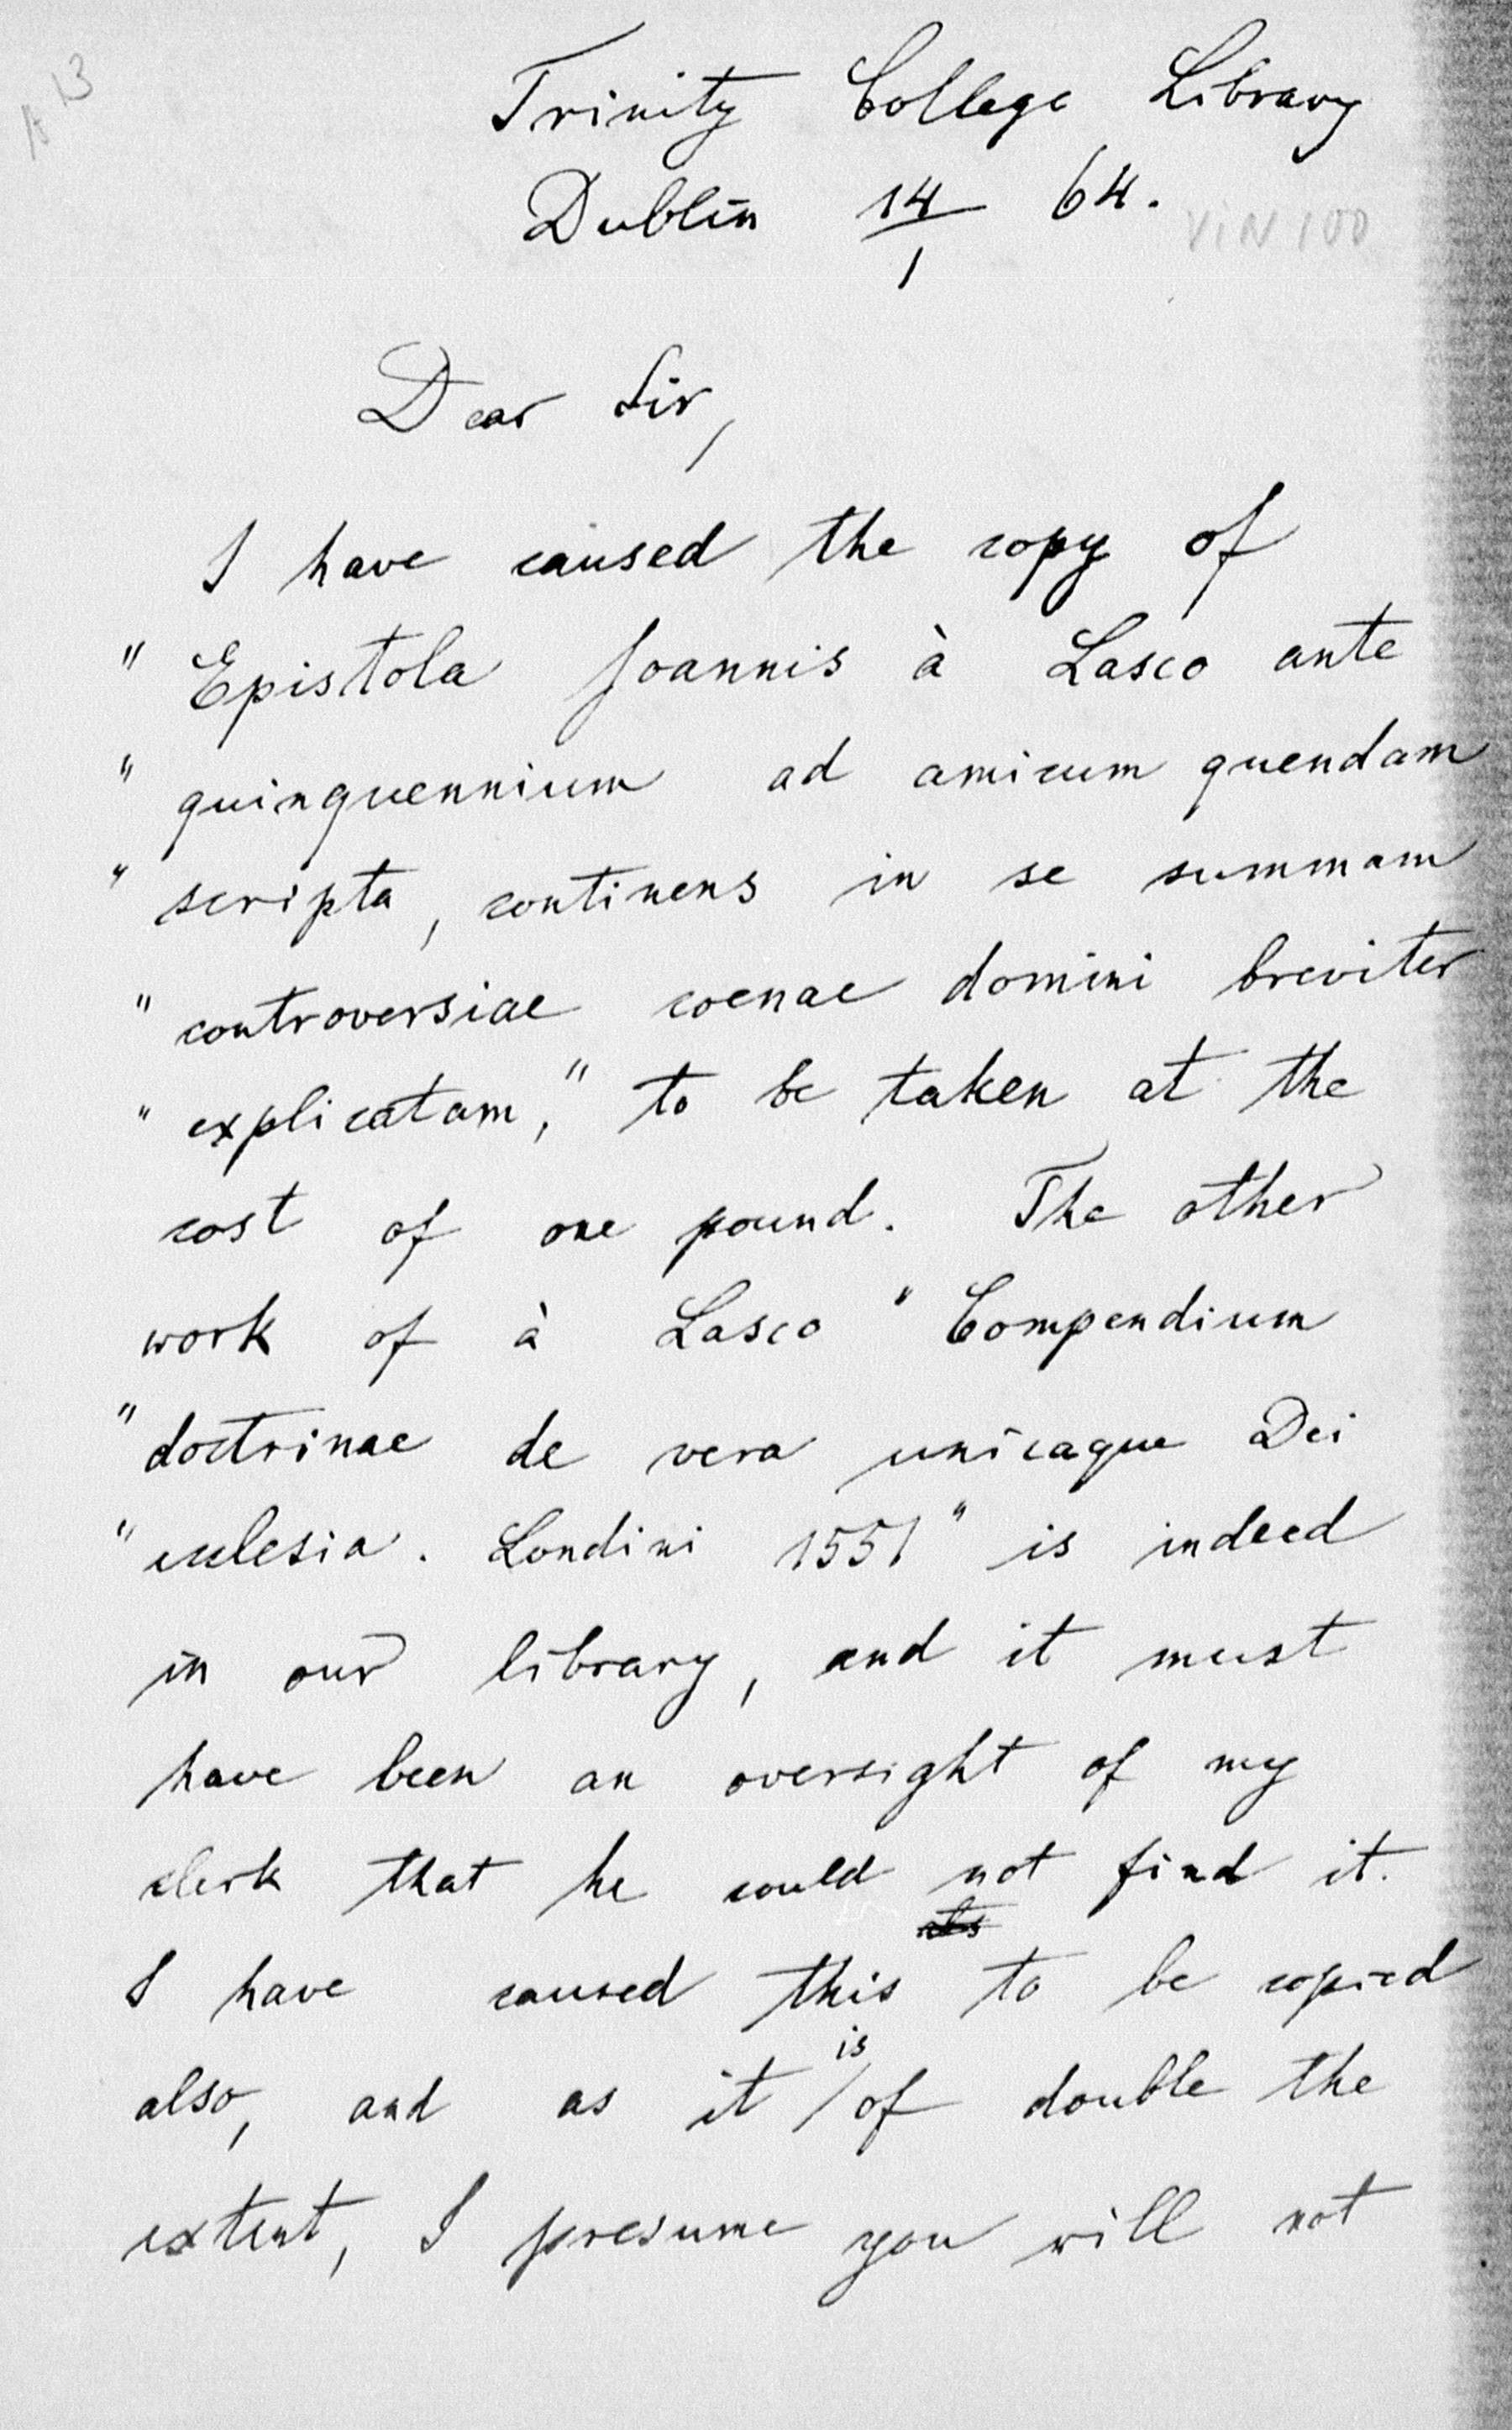 13
Trinity College Library
Dublin 14/1 64.
VIN 100
Dear Sir,
I have caused the copy of
" Epistola Joannis à Lasco ante
" quinquennium ad amicum quendam
" scripta, continens in se summam
" controversiae coenae domini breviter
" explicatam," to be taken at the
cost of one pound. The other
work of à Lasco " Compendium
" doctrinae de vera unicaque Dei
" ecclesia. Londini 1551" is indeed
in our library, and it must
have been an oversight of my
clerk that he could not find it.
I have caused this to be copied
also, and as it is of double the
extent, I presume you will not